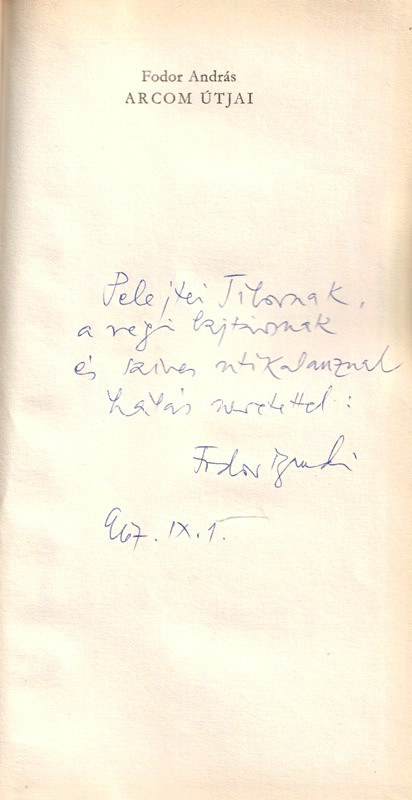 Fodor András
ARCOM ÚTJAI
Pelejtei Tibornak,
a régi bajtársnak
és szives útikalauznak
hálás szeretettel:
Fodor Bandi
967. IX. 1.